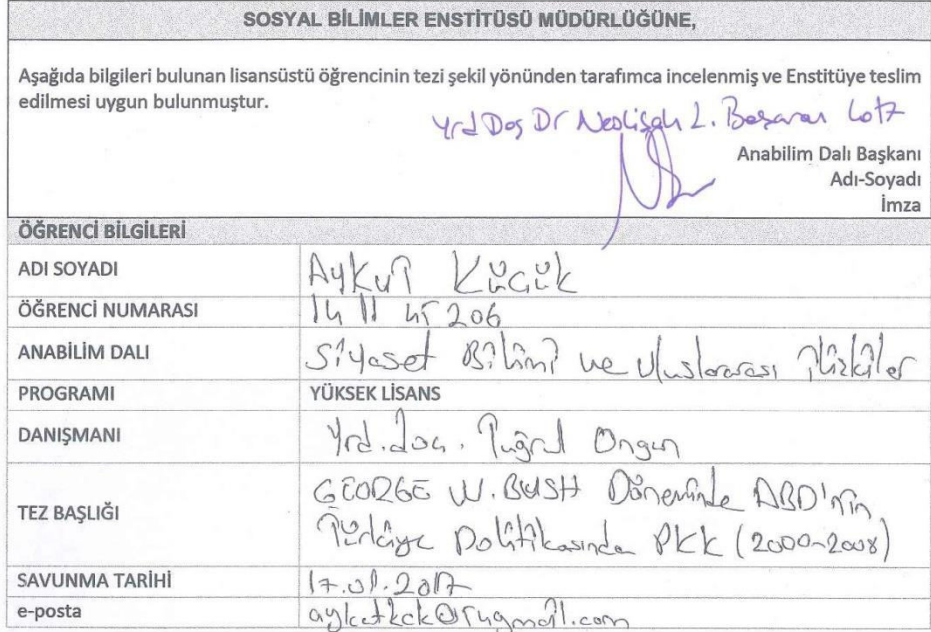 SOSYAL BİLİMLER ENSTİTÜSÜ MÜDÜRLÜĞÜNE,
Aşağıda bilgileri bulunan lisansüstü öğrencinin tezi şekil yönünden tarafımca incelenmiş ve Enstitüye teslim
edilmesi uygun bulunmuştur.
Yrd Doç Dr Neslişah L. Başaran Lotz
Anabilim Dalı Başkanı
Adı-Soyadı
İmza
ÖĞRENCİ BİLGİLERİ
ADI SOYADI Aykut Küçük
ÖĞRENCİ NUMARASI 14 11 45 206
ANABİLİM DALI Siyaset Bilimi ve Uluslararası İlişkiler
PROGRAMI YÜKSEK LİSANS
DANIŞMANI Yrd. doç. Tuğrul Ongun
TEZ BAŞLIĞI GEORGE W. BUSH Döneminde ABD'nin
Türkiye Politikasında PKK (2000-2008)
SAVUNMA TARİHİ 17.01.2017
e-posta